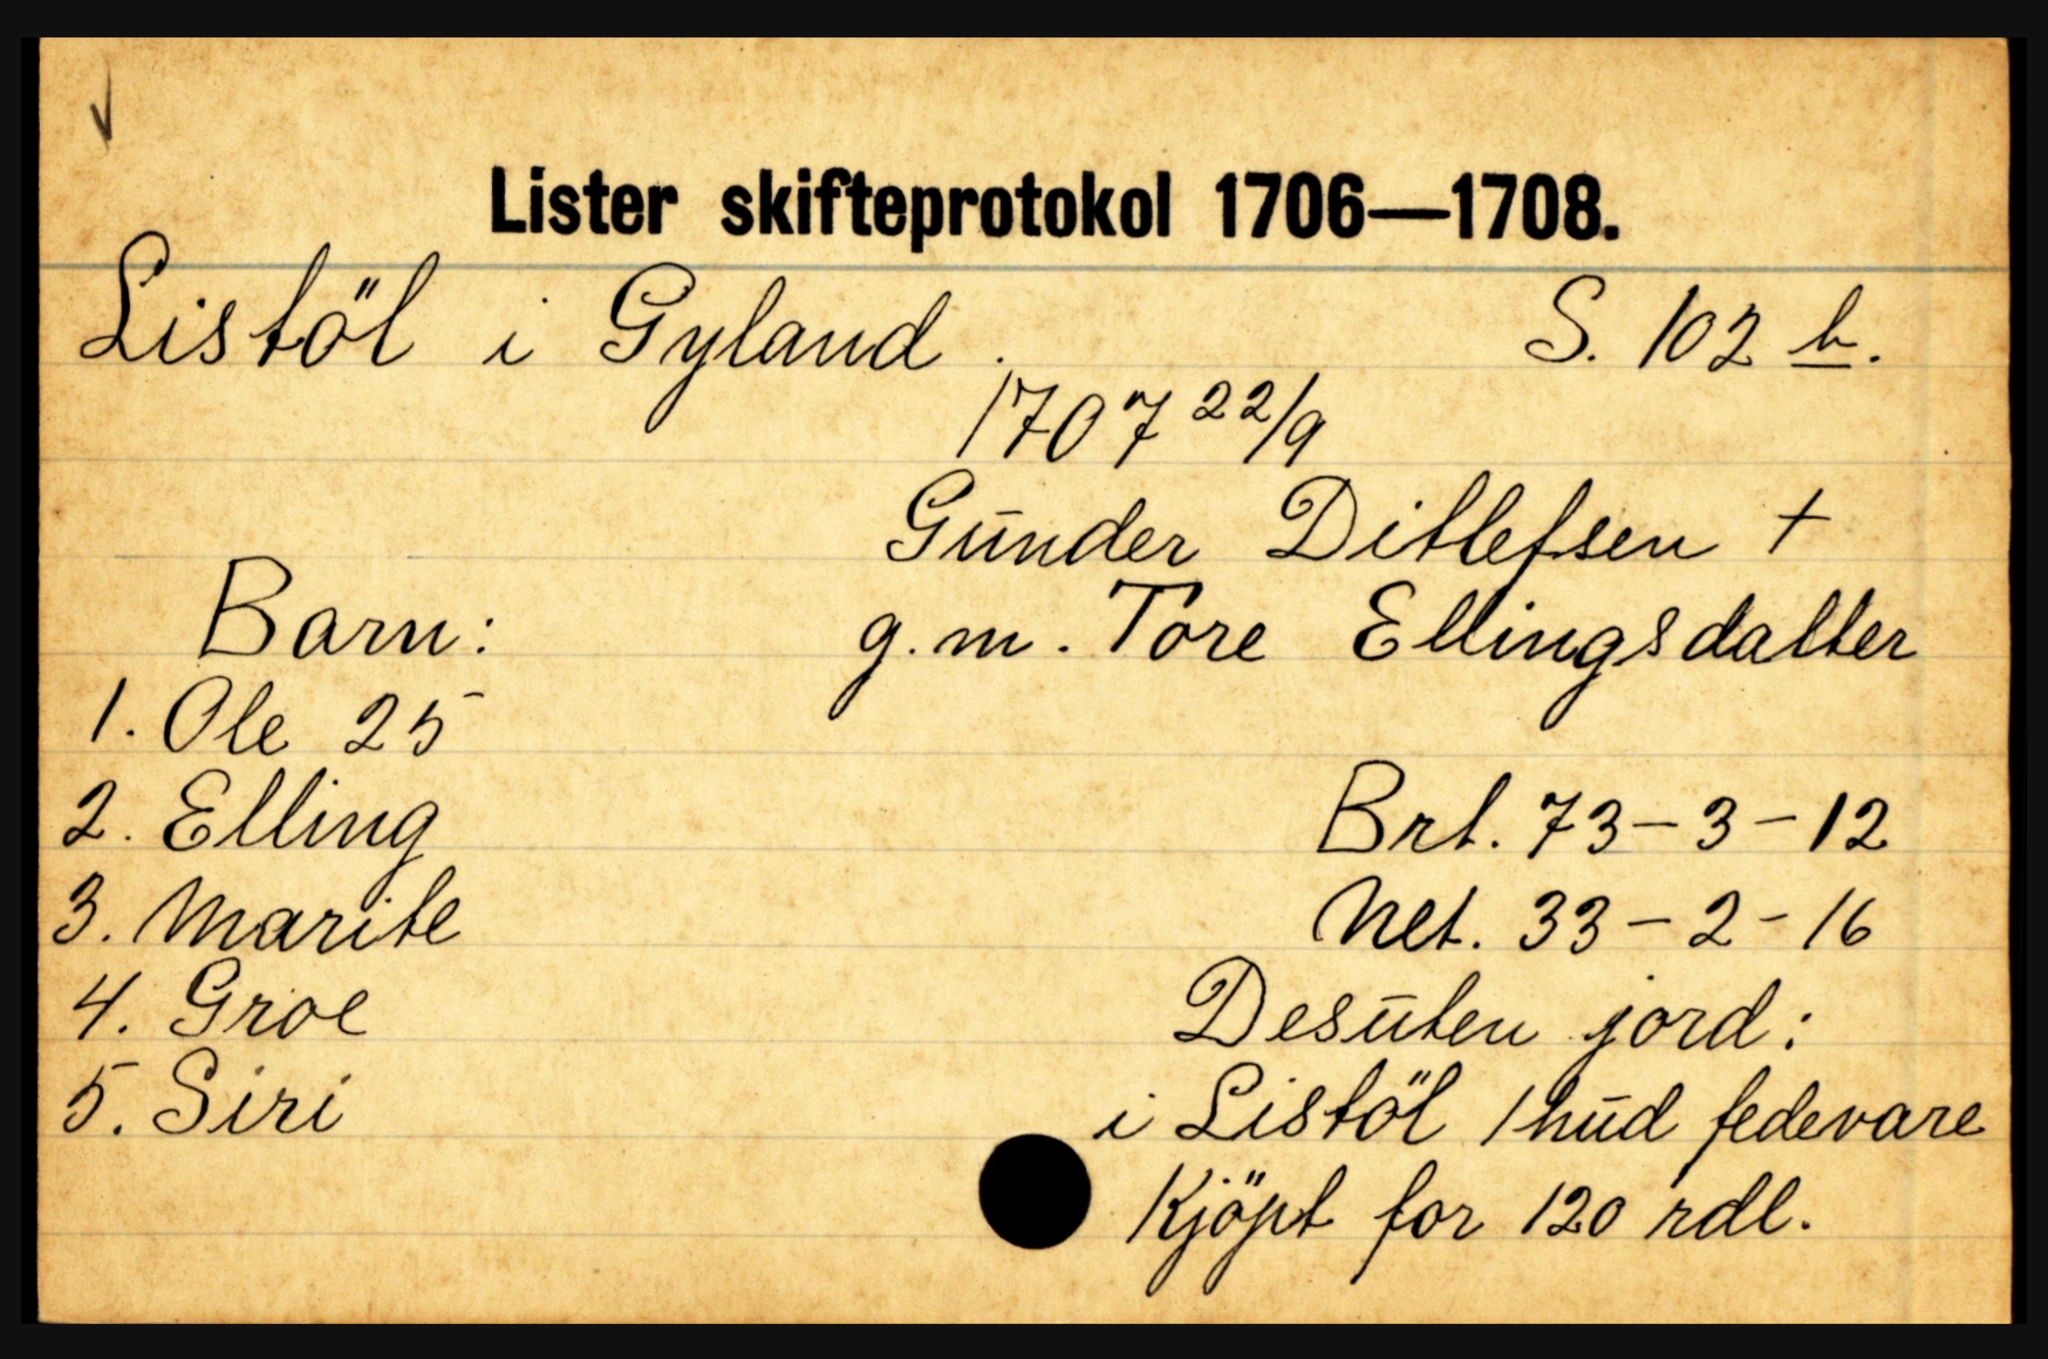 Lister skifteprotokol 1706—1708.
Listöl i Gyland. S. 102 b.
1707 22/9
Gunder Ditlefsen +
g.m. Tore Ellingsdatter
Barn:
1. Ole 25
2. Elling
3. Marite
4. Groe
5. Siri
Brt. 73-3-12
Net. 33-2-16
Desuten jord:
i Listöl 1 hud fedevare
Kjöpt for 120 rdl.